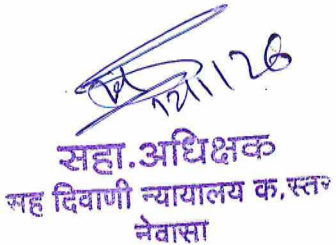 12/1/26
सहा.अधिक्षक
सह दिवाणी न्यायालय क.स्तर
नेवासा